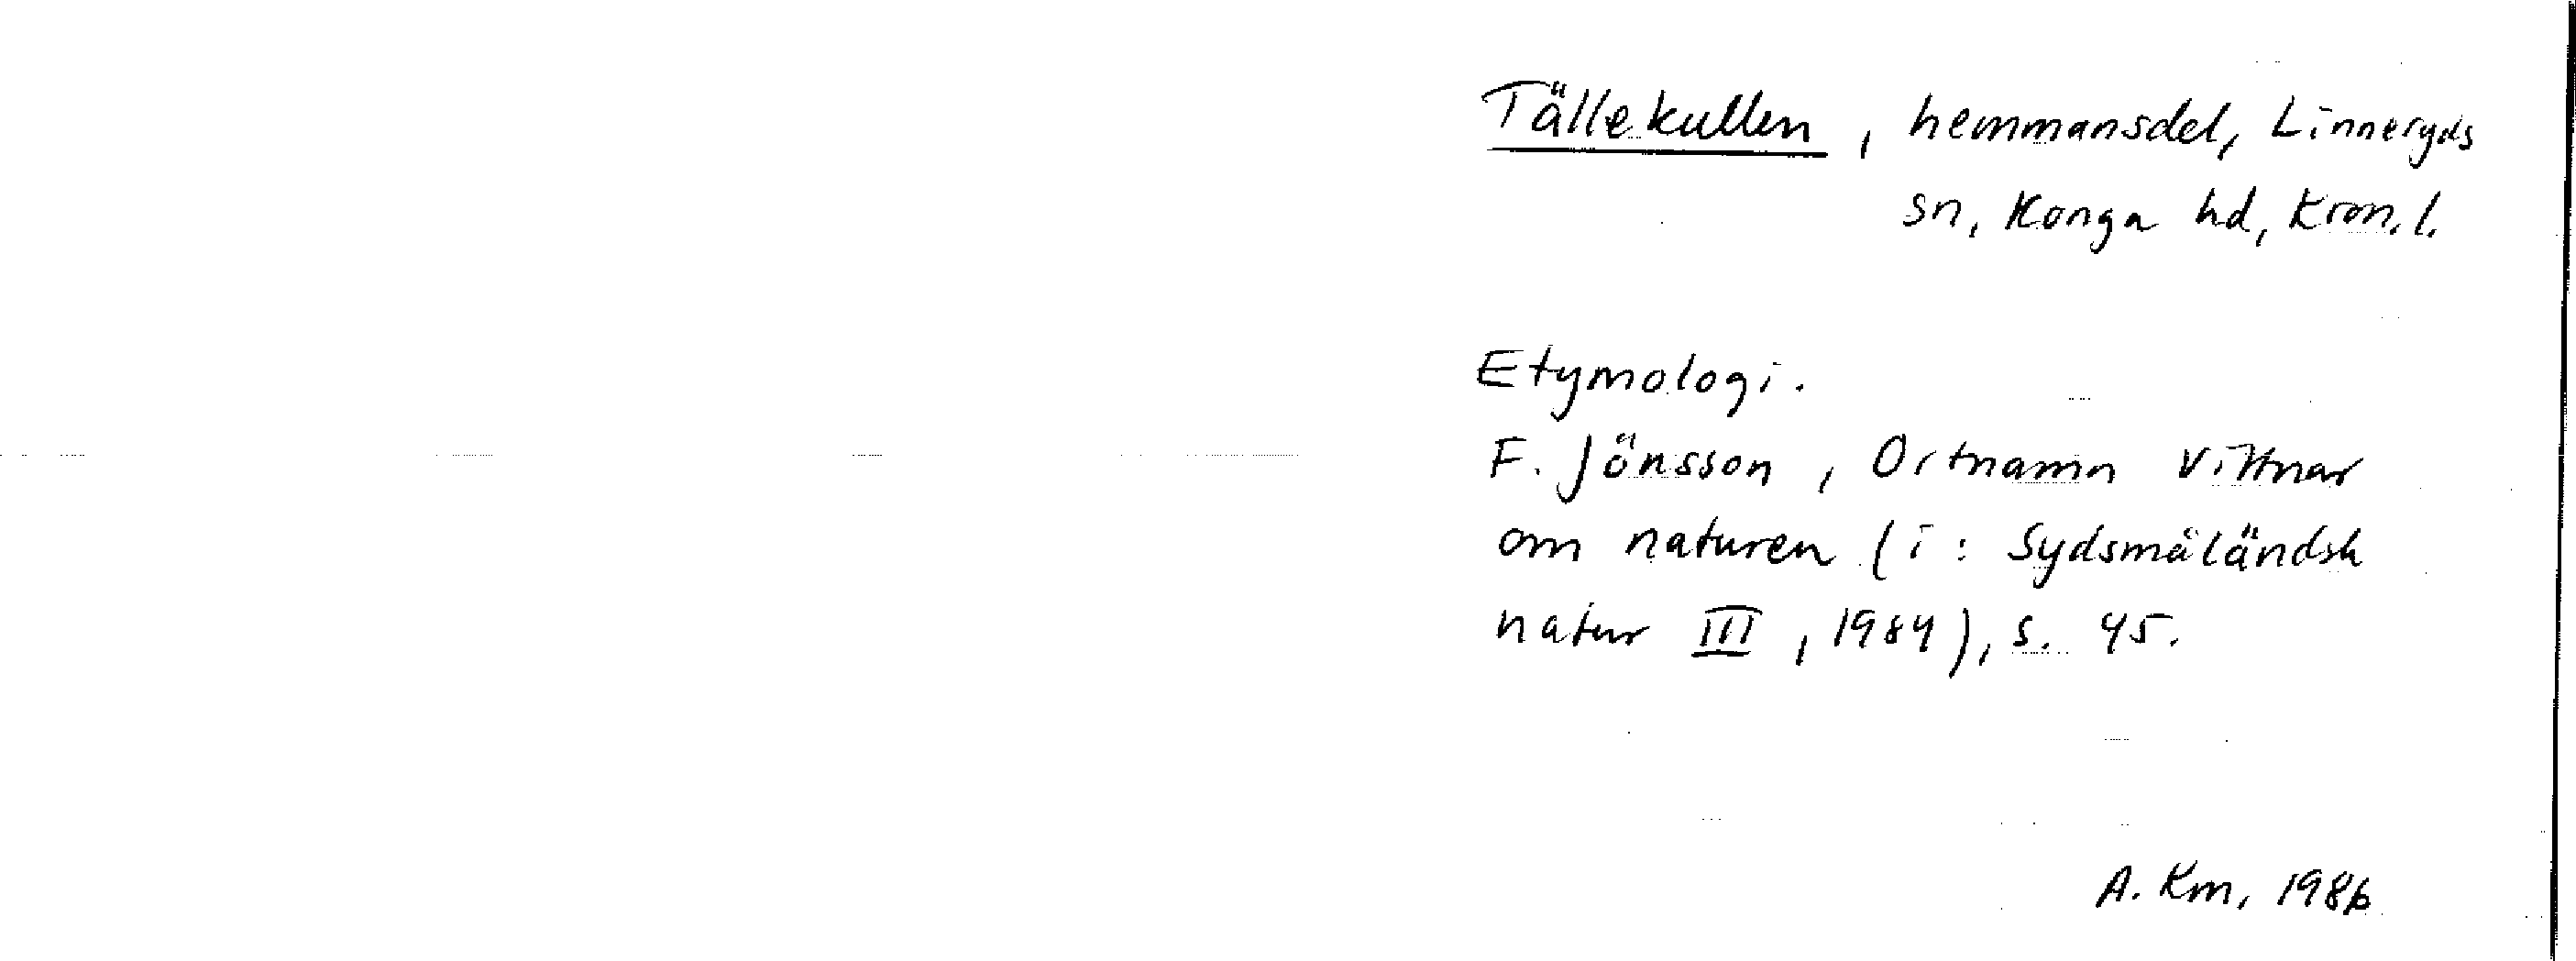 Tällekullen, hemmansdel, Linneryds
sn, Konga hd, Kron. l.
Etymologi.
F. Jönsson, Ortnamn vittnar
om naturen (i: Sydsmåländsk
natur III, 1984), s. 45.
A. Km, 1986